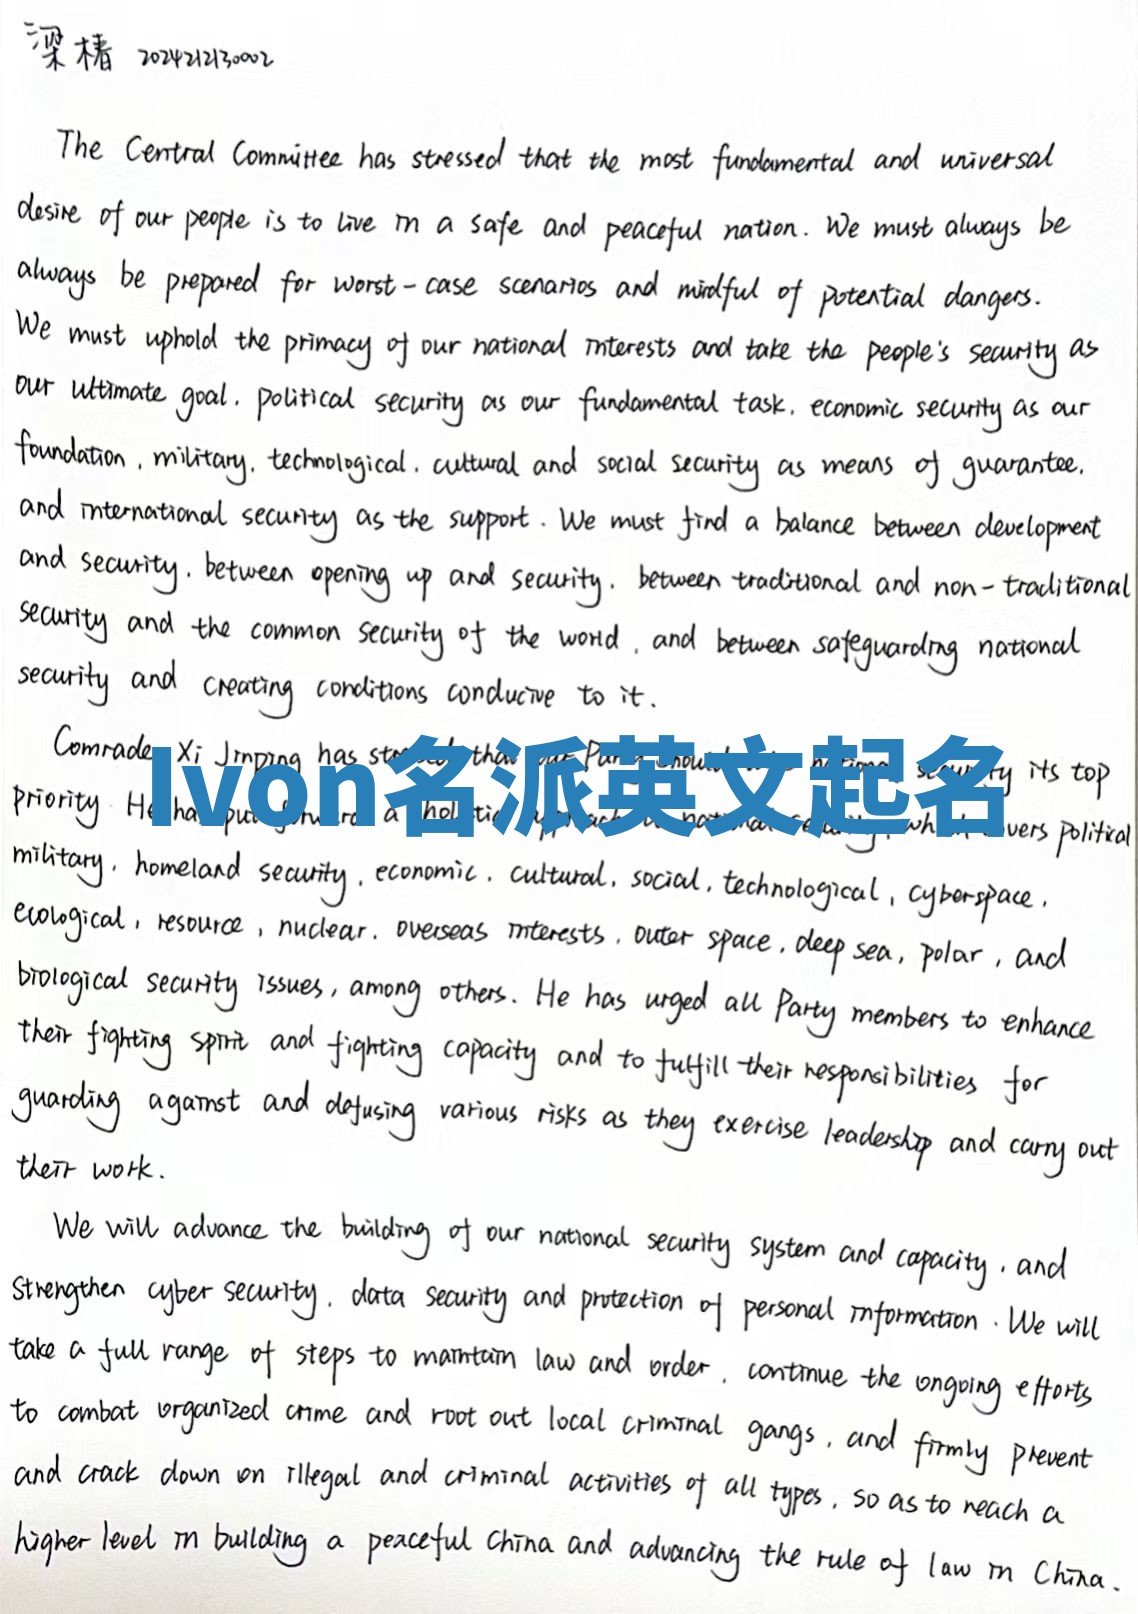 梁椿 2024212130002
The Central Committee has stressed that the most fundamental and universal
desire of our people is to live in a safe and peaceful nation. We must always be
always be prepared for worst-case scenarios and mindful of potential dangers.
We must uphold the primacy of our national interests and take the people's security as
our ultimate goal, political security as our fundamental task, economic security as our
foundation, military, technological, cultural and social security as means of guarantee,
and international security as the support. We must find a balance between development
and security, between opening up and security, between traditional and non-traditional
security and the common security of the world, and between safeguarding national
security and creating conditions conducive to it.
Comrade Xi Jinping has stressed that our Party should national security its top
priority. He has put forward a holistic approach to national security, which covers political
Ivon名派英文起名
military, homeland security, economic, cultural, social, technological, cyberspace,
ecological, resource, nuclear, overseas interests, outer space, deep sea, polar, and
biological security issues, among others. He has urged all Party members to enhance
their fighting spirit and fighting capacity and to fulfill their responsibilities for
guarding against and defusing various risks as they exercise leadership and carry out
their work.
We will advance the building of our national security system and capacity, and
strengthen cyber security, data security and protection of personal information. We will
take a full range of steps to maintain law and order, continue the ongoing efforts
to combat organized crime and root out local criminal gangs, and firmly prevent
and crack down on illegal and criminal activities of all types, so as to reach a
higher level in building a peaceful China and advancing the rule of law in China.